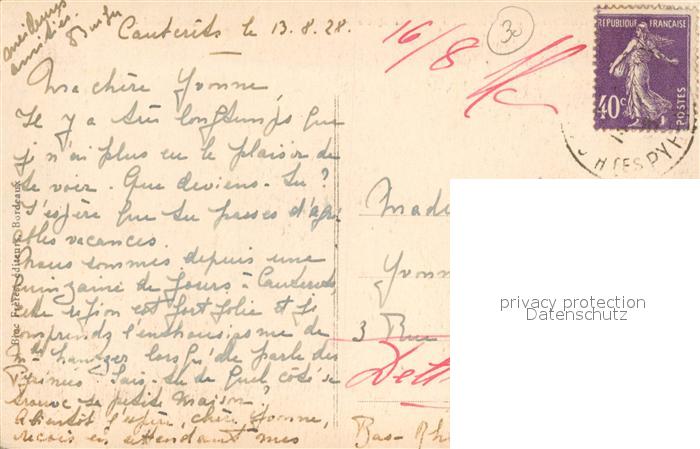 meilleures
amitiés
Cauterets le 13.8.28.
16/8
30
REPUBLIQUE FRANÇAISE
40c
POSTES
Ma chère Yvonne,
Il y a très longtemps que
j n'ai plus eu le plaisir de
te voir. Que deviens-tu ?
J'espère que tu passes d'agré
ables vacances.
Nous sommes depuis une
quinzaine de jours à Cauterets,
cette région est fort jolie et je
comprends l'enthousiasme de
Mr hanzger lorsqu'elle parle des
Pyrinées. Sais-tu de quel côté se
trouve sa petite maison ?
A bientôt l'espère, chère Yvonne,
reçois en attendant mes
Bloc Frères, éditeurs, Bordeaux
Made
Yvonn
3 Rue
Dett
Bas-Rh
privacy protection
Datenschutz